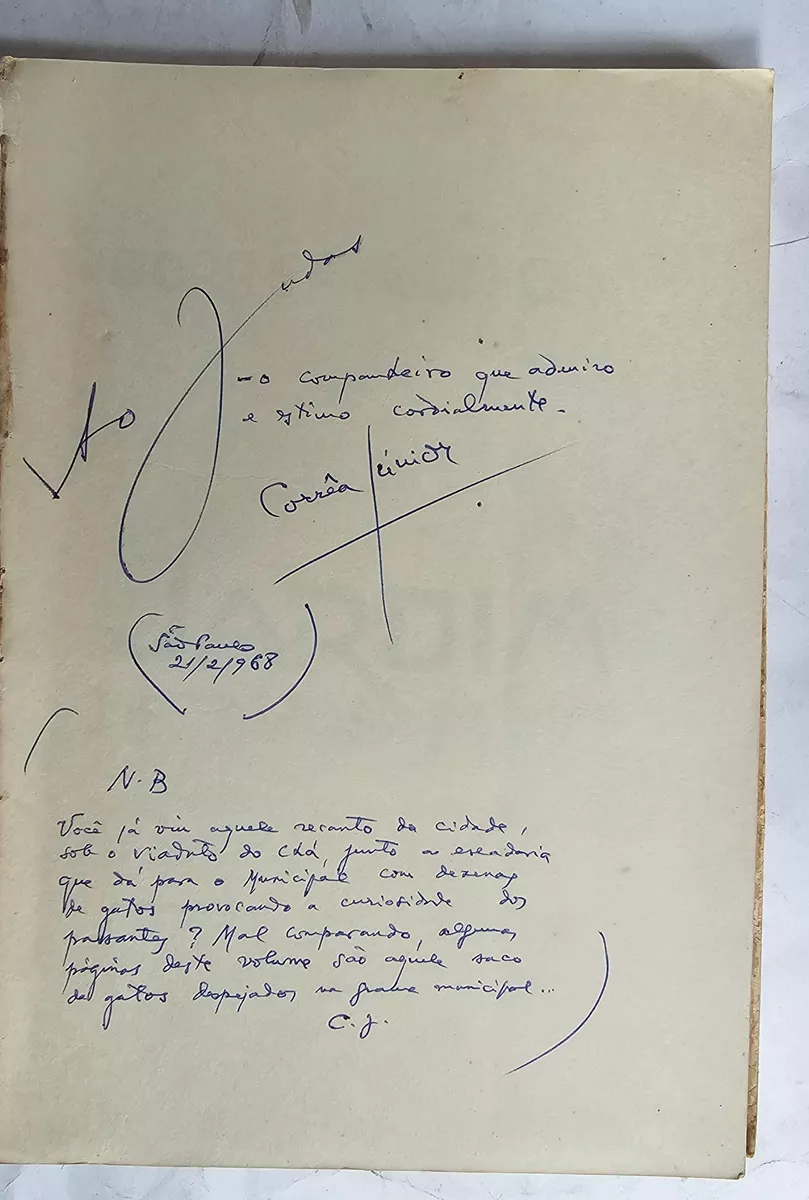 Ao Judas
— o companheiro que admiro
e estimo cordialmente.
Corrêa Júnior
(São Paulo
21/2/968)
N. B
Você já viu aquele recanto da cidade,
sob o Viaduto do Chá, junto a escadaria
que dá para o Municipal com dezenas
de gatos provocando a curiosidade dos
passantes? Mal comparando, algumas
páginas deste volume são aquele saco
de gatos despejados na grama municipal...
C. J.